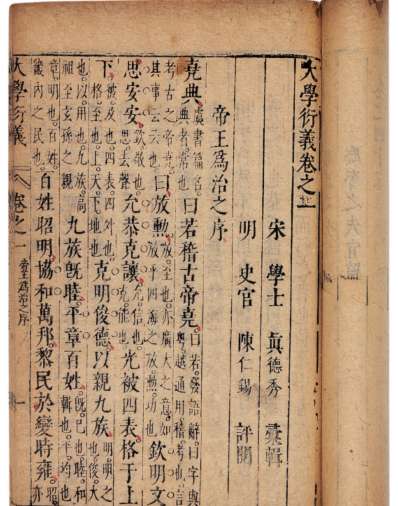 大學衍義卷之一
宋 學士 眞德秀 彙輯
明 史官 陳仁錫 評閱
帝王爲治之序
堯典 虞書篇名典者常也 曰若稽古帝堯 曰若發語辭曰字與粵越通用稽考也言
考古之帝堯其事云云也 曰放勳 放至也亦廣大之意如放乎四海之放勳功也 欽明文
思安安 欽敬也思去聲 允恭克讓 允信也克能也 光被四表格于上
下 被及也四表四外也格至也上天下地也 克明俊德以親九族 明明之也俊大
也以用也九族高祖至玄孫之親 九族旣睦平章百姓 旣已也睦和也平均也
章明也百姓畿內之民也 百姓昭明協和萬邦黎民於變時雍
大學衍義 卷之一 帝王爲治之序